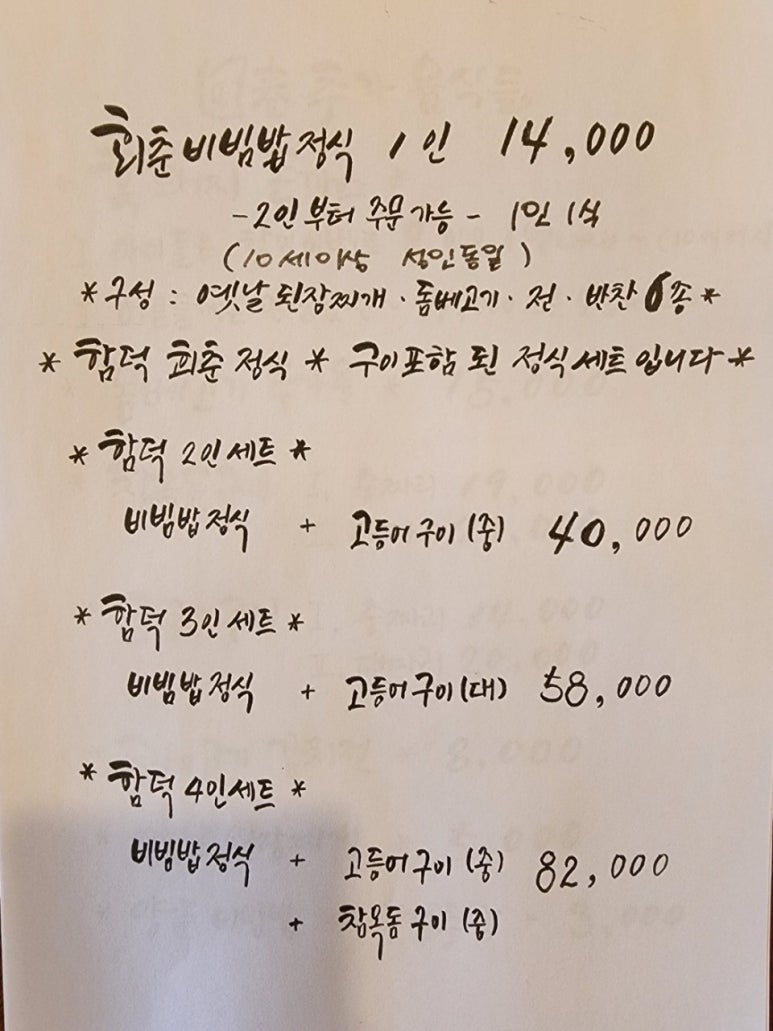 회춘 비빔밥 정식 1인 14,000
-2인부터 주문 가능- 1인 1식
(10세이상 성인동일)
*구성 : 옛날 된장찌개 · 돔베고기 · 전 · 반찬 6종*
* 함덕 회춘 정식 * 구이포함 된 정식 세트 입니다*
* 함덕 2인 세트 *
비빔밥 정식 + 고등어 구이 (중) 40,000
* 함덕 3인 세트 *
비빔밥 정식 + 고등어 구이 (대) 58,000
* 함덕 4인 세트 *
비빔밥 정식 + 고등어 구이 (중) 82,000
+ 참옥돔 구이 (중)